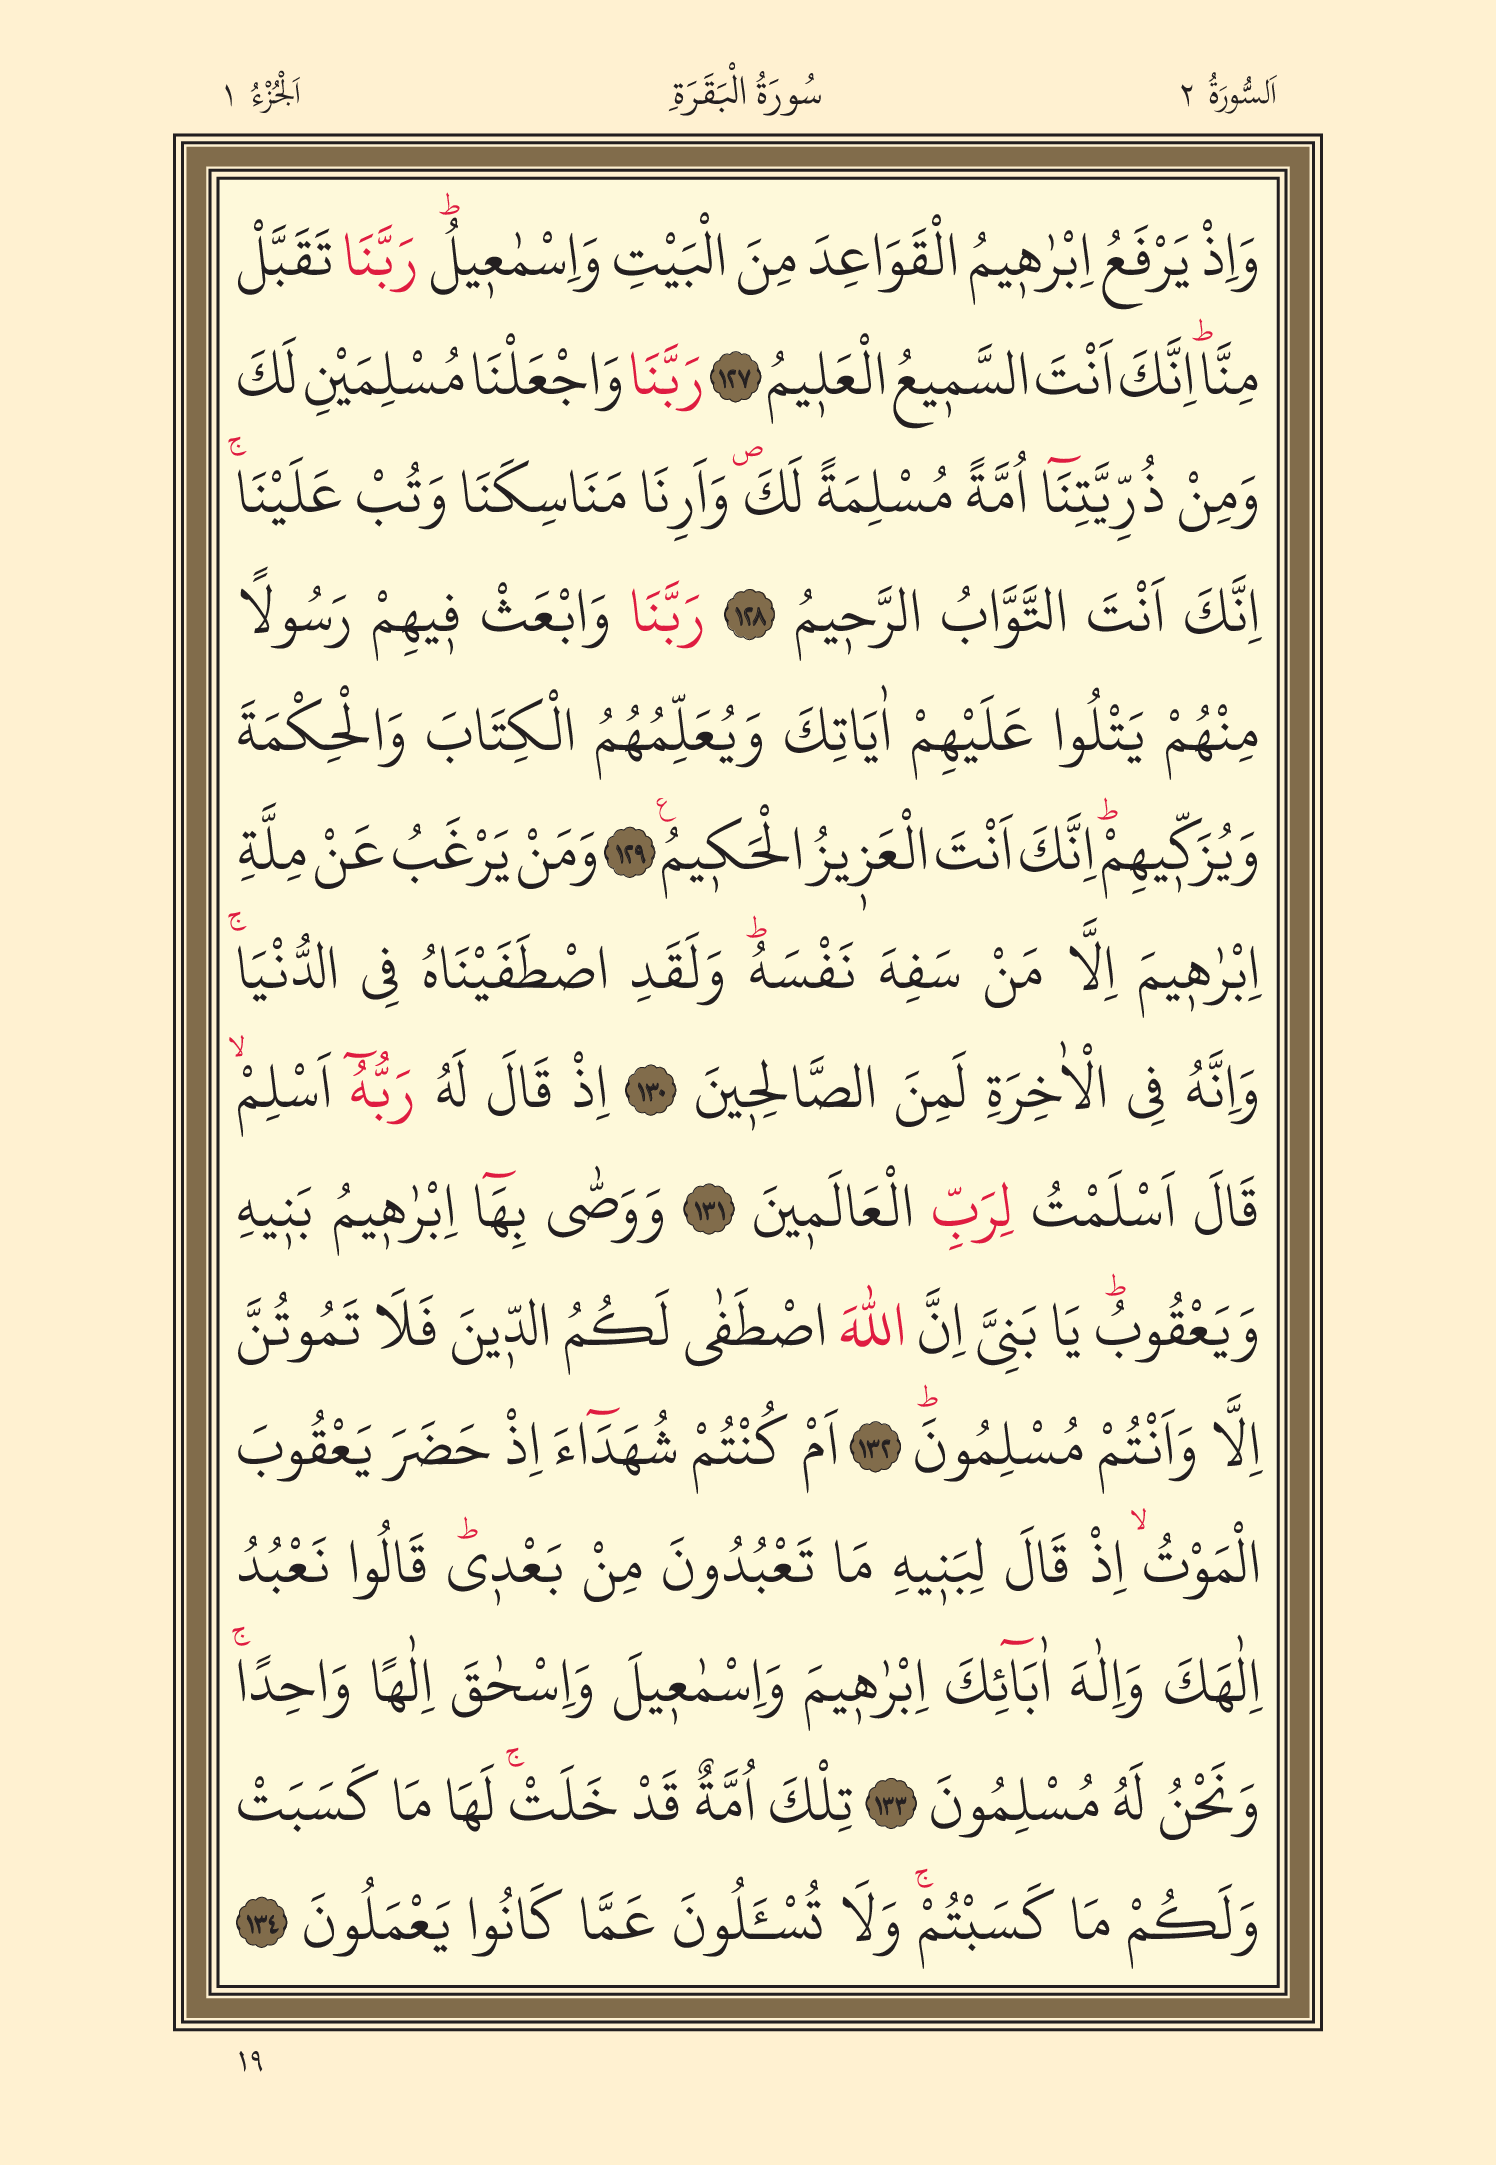 اَلسُّورَةُ ٢ سُورَةُ الْبَقَرَةِ اَلْجُزْءُ ١
وَاِذْ يَرْفَعُ اِبْرٰه۪يمُ الْقَوَاعِدَ مِنَ الْبَيْتِ وَاِسْمٰع۪يلُۜ رَبَّنَا تَقَبَّلْ
مِنَّاۜ اِنَّكَ اَنْتَ السَّم۪يعُ الْعَل۪يمُ ﴿١٢٧﴾ رَبَّنَا وَاجْعَلْنَا مُسْلِمَيْنِ لَكَ
وَمِنْ ذُرِّيَّتِنَٓا اُمَّةً مُسْلِمَةً لَكَۖ وَاَرِنَا مَنَاسِكَنَا وَتُبْ عَلَيْنَاۚ
اِنَّكَ اَنْتَ التَّوَّابُ الرَّح۪يمُ ﴿١٢٨﴾ رَبَّنَا وَابْعَثْ ف۪يهِمْ رَسُولًا
مِنْهُمْ يَتْلُوا عَلَيْهِمْ اٰيَاتِكَ وَيُعَلِّمُهُمُ الْكِتَابَ وَالْحِكْمَةَ
وَيُزَكّ۪يهِمْۜ اِنَّكَ اَنْتَ الْعَز۪يزُ الْحَك۪يمُ۟ ﴿١٢٩﴾ وَمَنْ يَرْغَبُ عَنْ مِلَّةِ
اِبْرٰه۪يمَ اِلَّا مَنْ سَفِهَ نَفْسَهُۜ وَلَقَدِ اصْطَفَيْنَاهُ فِى الدُّنْيَاۚ
وَاِنَّهُ فِى الْاٰخِرَةِ لَمِنَ الصَّالِح۪ينَ ﴿١٣٠﴾ اِذْ قَالَ لَهُ رَبُّهُٓ اَسْلِمْۙ
قَالَ اَسْلَمْتُ لِرَبِّ الْعَالَم۪ينَ ﴿١٣١﴾ وَوَصّٰى بِهَٓا اِبْرٰه۪يمُ بَن۪يهِ
وَيَعْقُوبُۜ يَا بَنِىَّ اِنَّ اللّٰهَ اصْطَفٰى لَكُمُ الدّ۪ينَ فَلَا تَمُوتُنَّ
اِلَّا وَاَنْتُمْ مُسْلِمُونَۜ ﴿١٣٢﴾ اَمْ كُنْتُمْ شُهَدَٓاءَ اِذْ حَضَرَ يَعْقُوبَ
الْمَوْتُۙ اِذْ قَالَ لِبَن۪يهِ مَا تَعْبُدُونَ مِنْ بَعْد۪ىۜ قَالُوا نَعْبُدُ
اِلٰهَكَ وَاِلٰهَ اٰبَٓائِكَ اِبْرٰه۪يمَ وَاِسْمٰع۪يلَ وَاِسْحٰقَ اِلٰهًا وَاحِدًاۚ
وَنَحْنُ لَهُ مُسْلِمُونَ ﴿١٣٣﴾ تِلْكَ اُمَّةٌ قَدْ خَلَتْۚ لَهَا مَا كَسَبَتْ
وَلَكُمْ مَا كَسَبْتُمْۚ وَلَا تُسْـَٔلُونَ عَمَّا كَانُوا يَعْمَلُونَ ﴿١٣٤﴾
١٩